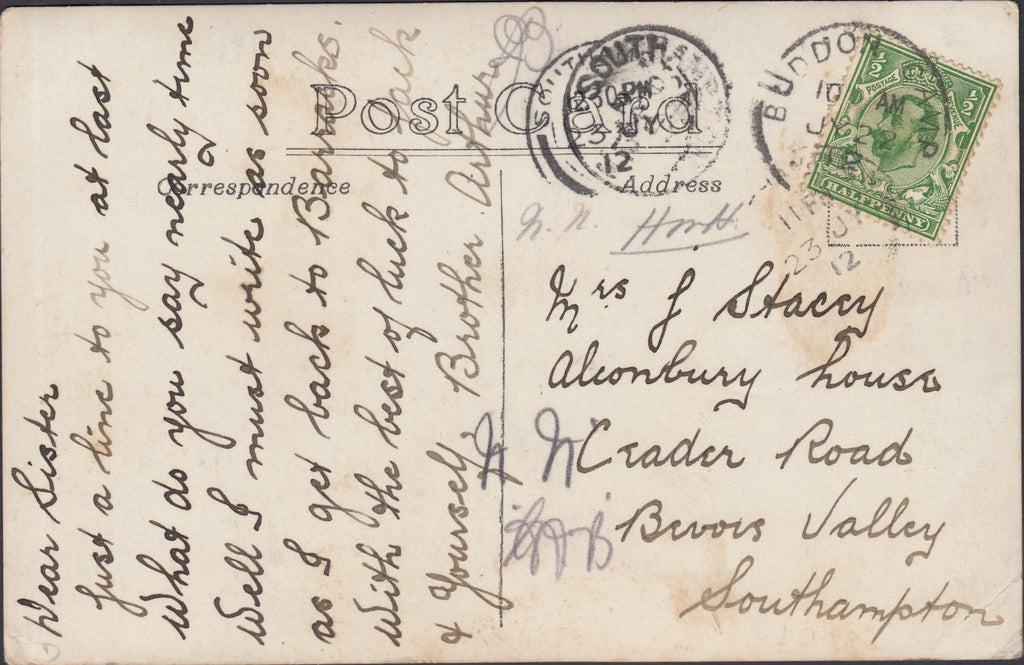 Post Card
Correspondence
Address
Dear Sister
Just a line to you at last
What do you say nearly time
Well I must write as soon
as I get back to Barracks.
With the best of luck to Jack
& Yourself, Brother Arthur
Mrs J Stacey
Alconbury house
Ceader Road
Bevois Valley
Southampton
N. N.
SOUTHAMPTON
30 PM
JY
12
BUDDON CAMP
10 AM
JY 22
12
11
23 JY
12
½
POSTAGE
½
HALFPENNY